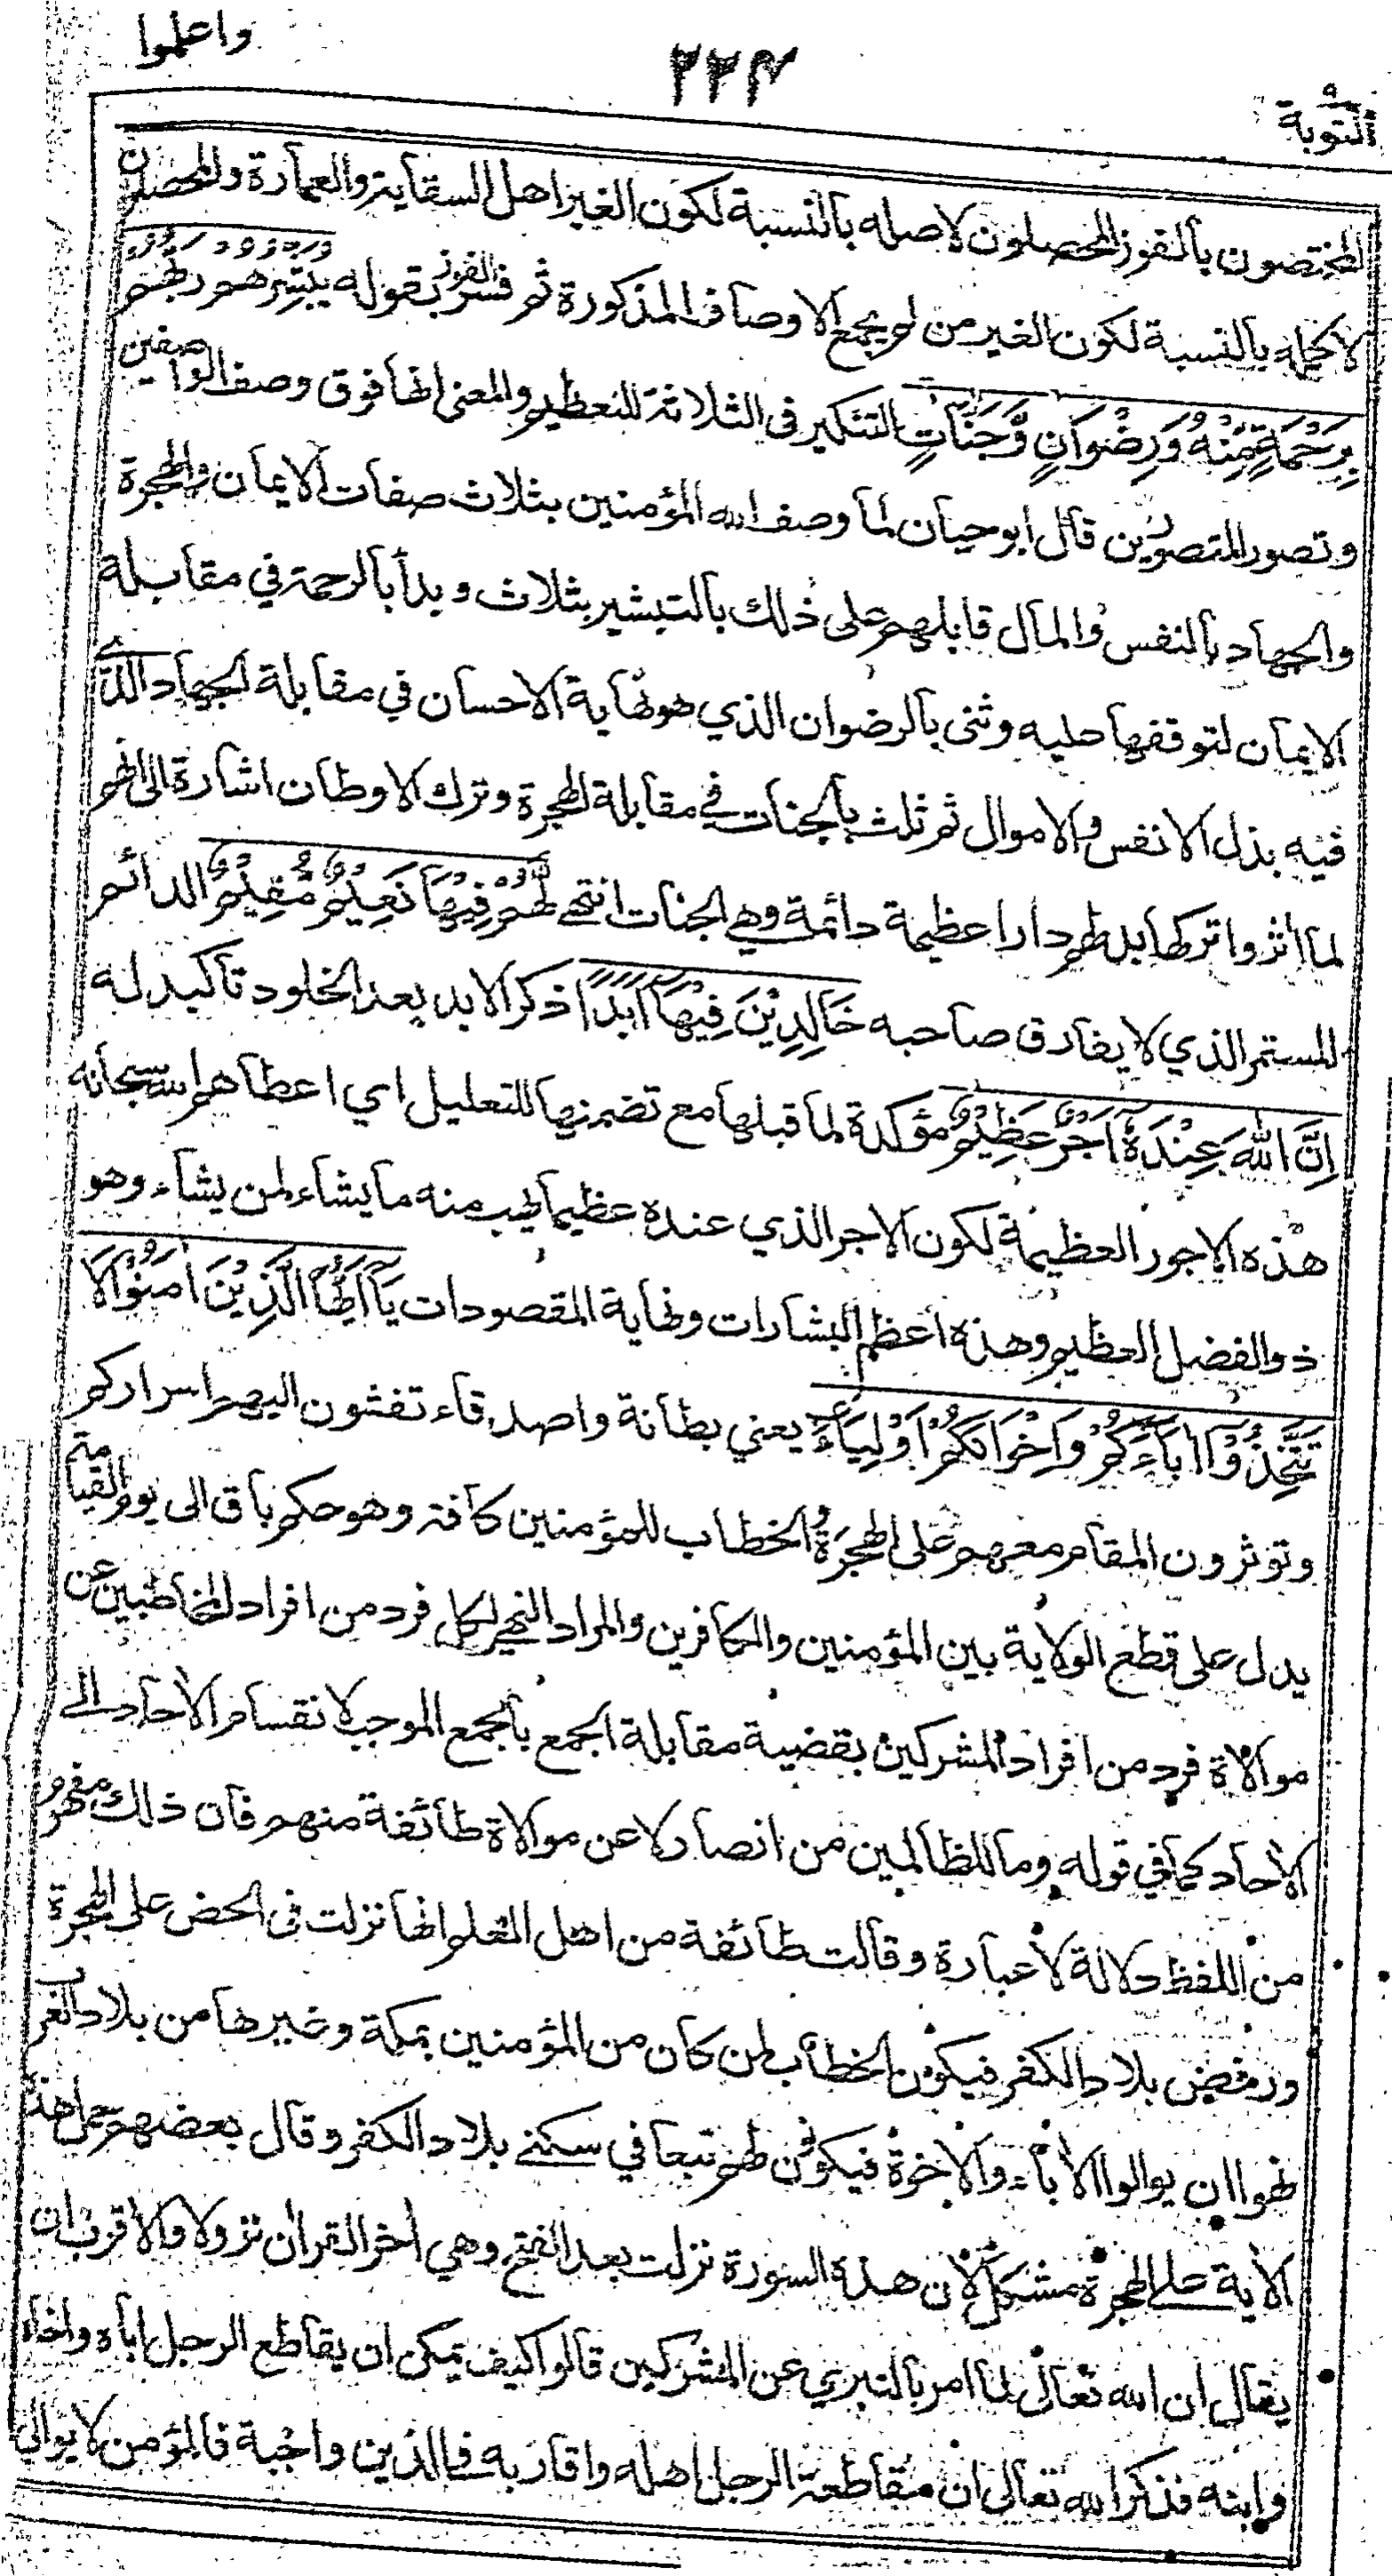 واعلموا
٢٢٣
التوبة ٩
المختصون بالفوز المحصلون لاصله بالنسبة لكون الغير اهل السقاية والعمارة والمحصلون
لاكمله بالنسبة لكون الغير من لم يجمع الاوصاف المذكورة ثم فسر الفوز بقوله يُبَشِّرُهُمْ رَبُّهُمْ
بِرَحْمَةٍ مِّنْهُ وَرِضْوَانٍ وَّجَنَّاتٍ التنكير في الثلاثة للتعظيم والمعنى انها فوق وصف الواصفين
وتصور المتصورين قال ابو حيان لما وصف الله المؤمنين بثلاث صفات الايمان والهجرة
والجهاد بالنفس والمال قابلهم على ذلك بالتبشير بثلاث وبدأ بالرحمة في مقابلة
الايمان لتوقفها عليه وثنى بالرضوان الذي هو نهاية الاحسان في مقابلة الجهاد الذي
فيه بذل الانفس والاموال ثم ثلث بالجنات في مقابلة الهجرة وترك الاوطان اشارة الى انهم
لما اثروا تركها بدلهم دارا عظيمة دائمة وهي الجنات انتهى لَّهُمْ فِيْهَا نَعِيْمٌ مُّقِيْمٌ الدائم
المستمر الذي لا يفارق صاحبه خَالِدِيْنَ فِيْهَا اَبَدًا ذكر الابد بعد الخلود تاكيد له
اِنَّ اللّٰهَ عِنْدَهٗ اَجْرٌ عَظِيْمٌ مؤكدة لما قبلها مع تضمنها للتعليل اي اعطاهم الله سبحانه
هذه الاجور العظيمة لكون الاجر الذي عنده عظيما يهب منه ما يشاء لمن يشاء وهو
ذو الفضل العظيم وهذه اعظم البشارات ونهاية المقصودات يَآ اَيُّهَا الَّذِيْنَ اٰمَنُوْا لَا
تَتَّخِذُوْآ اٰبَآءَكُمْ وَاِخْوَانَكُمْ اَوْلِيَآءَ يعني بطانة واصدقاء تفشون اليهم اسراركم
وتوثرون المقام معهم على الهجرة الخطاب للمؤمنين كافة وهو حكم باق الى يوم القيامة
يدل على قطع الولاية بين المؤمنين والكافرين والمراد النهي لكل فرد من افراد المخاطبين عن
موالاة فرد من افراد المشركين بقضية مقابلة الجمع بالجمع الموجب لانقسام الاحاد الى
الاحاد كما في قوله وما للظالمين من انصار لا عن موالاة طائفة منهم فان ذلك مفهوم
من اللفظ دلالة لا عبارة وقالت طائفة من اهل العلم انها نزلت في الحض على الهجرة
ورفض بلاد الكفر فيكون الخطاب لمن كان من المؤمنين بمكة وغيرها من بلاد العرب
نهوا ان يوالوا الاباء والاخوة فيكون لهم تبعا في سكنى بلاد الكفر وقال بعضهم حمل هذه
الاية على الهجرة مشكل لان هذه السورة نزلت بعد الفتح وهي اخر القران نزولا والاقرب ان
يقال ان الله تعالى لما امر بالتبري عن المشركين قالوا كيف يمكن ان يقاطع الرجل اباه واخاه
وابنه فذكر الله تعالى ان مقاطعة الرجل اهله واقاربه في الدين واجبة فالمؤمن لا يوالي